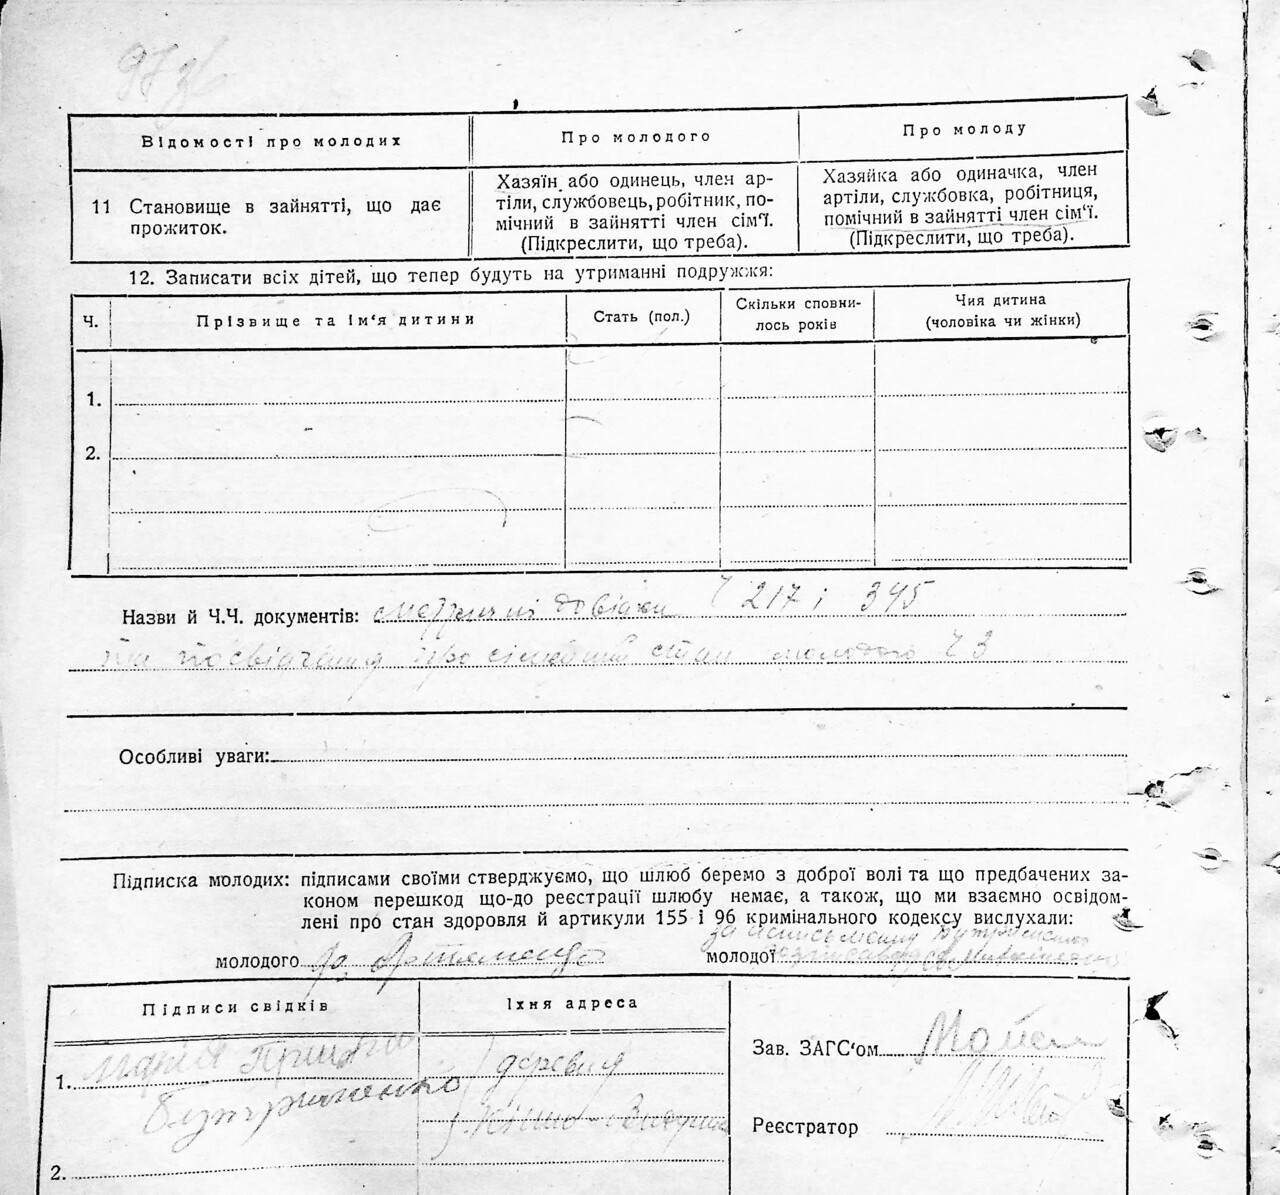 97зв
Відомості про молодих
Про молодого
Про молоду
11 Становище в зайнятті, що дає
прожиток.
Хазяїн або одинець, член ар-
тіли, службовець, робітник, по-
мічний в зайнятті член сім'ї.
(Підкреслити, що треба).
Хазяйка або одиначка, член
артіли, службовка, робітниця,
помічний в зайнятті член сім'ї.
(Підкреслити, що треба).
12. Записати всіх дітей, що тепер будуть на утриманні подружжя:
Ч.
Прізвище та ім'я дитини
Стать (пол.)
Скільки сповни-
лось років
Чия дитина
(чоловіка чи жінки)
1.
2.
Назви й Ч.Ч. документів: метричні довідки Ч 217 і 345
та посвідчання про сімейний стан молодого Ч 3
Особливі уваги:
Підписка молодих: підписами своїми стверджуємо, що шлюб беремо з доброї волі та що предбачених за-
коном перешкод що-до реєстрації шлюбу немає, а також, що ми взаємно освідом-
лені про стан здоровля й артикули 155 і 96 кримінального кодексу вислухали:
молодого
молодої
Підписи свідків
Їхня адреса
Зав. ЗАГС'ом
1. Марія
деревня
Реєстратор
2.